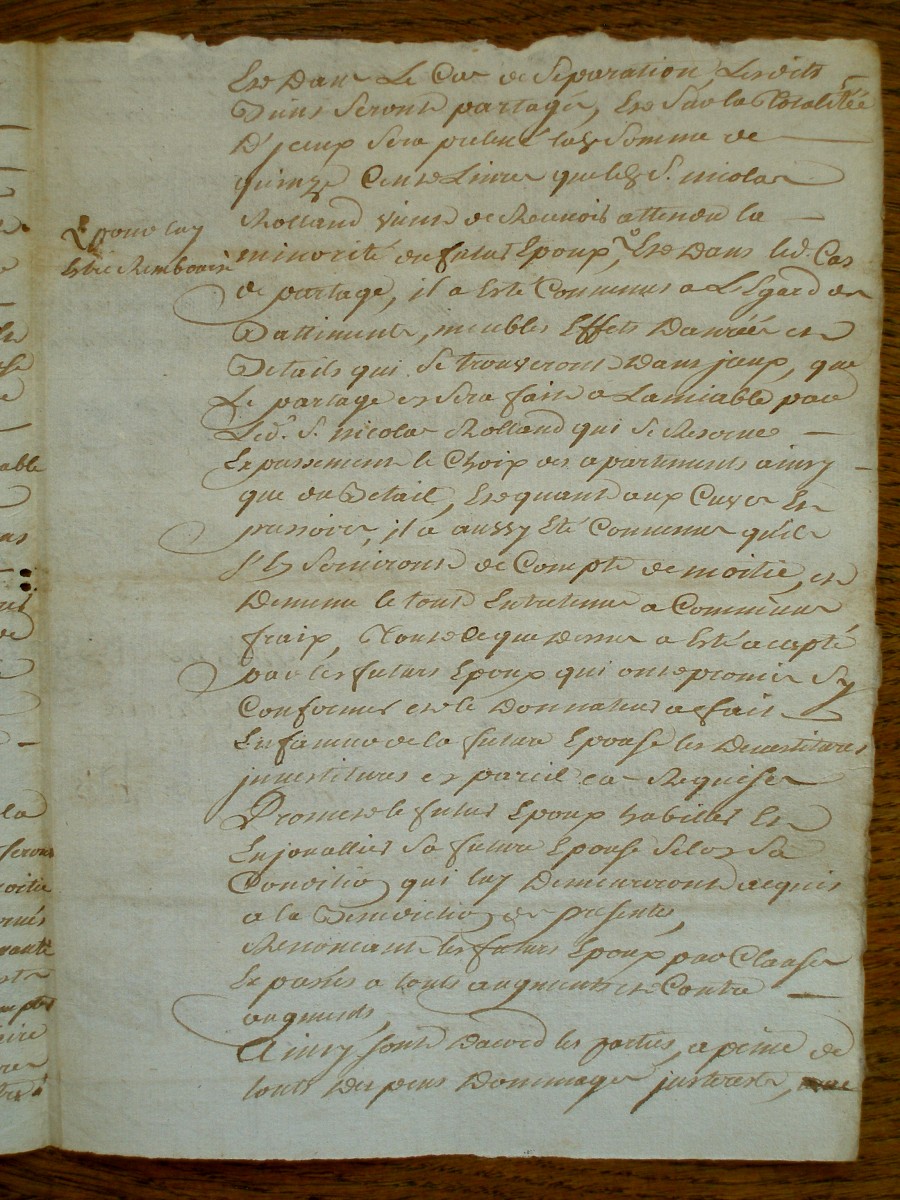 Et Dans Le Cas de Separation, Lesdits
Biens Seront partagés, Et Sur la Totalitée
D'jceux Sera prelevé lad Somme de
quinze Cent Livres que led S. nicolas
Rolland vient de Reconois attendu la
minorité du futur Epoux, Et Dans led. Cas
de partage, il a Esté Convenus a L'Egard des
Battiments, meubles Effets Danrées et
Betails qui Se trouveront Dans jceux, que
Le partage en Sera fait a Lamiable par
Led. S. nicolas Rolland qui Se Reserve
Expressement le Choix des apartements ainsy
que du Betail, Et quant aux Cuves Et
pressoires, il a aussy Eté Convenus qu'ils
S'En Serviront de Compte de moitié, et
Dememe le tout Entretenus a Communs
fraix, Tout Ce que Dessus a Esté accepté
par les futurs Epoux qui ont promis Sy
Conformer et le Donnateur a fait
En faveur de la future Epouse les Devestitures
jnvestitures en pareil cas Requises
Promet le futur Epoux habiller Et
Enjoualler Sa future Epouse Selon Sa
Condition qui luy Demeureront acquis
a la Benediction des presentes,
Renoncant les futurs Epoux par Clauses
Expresses a touts augments et Contre
augments,
Ainsy sont Dacord les parties, a peine de
touts Depens Dommages jnterests,
pour luy
Estre Rembourcé